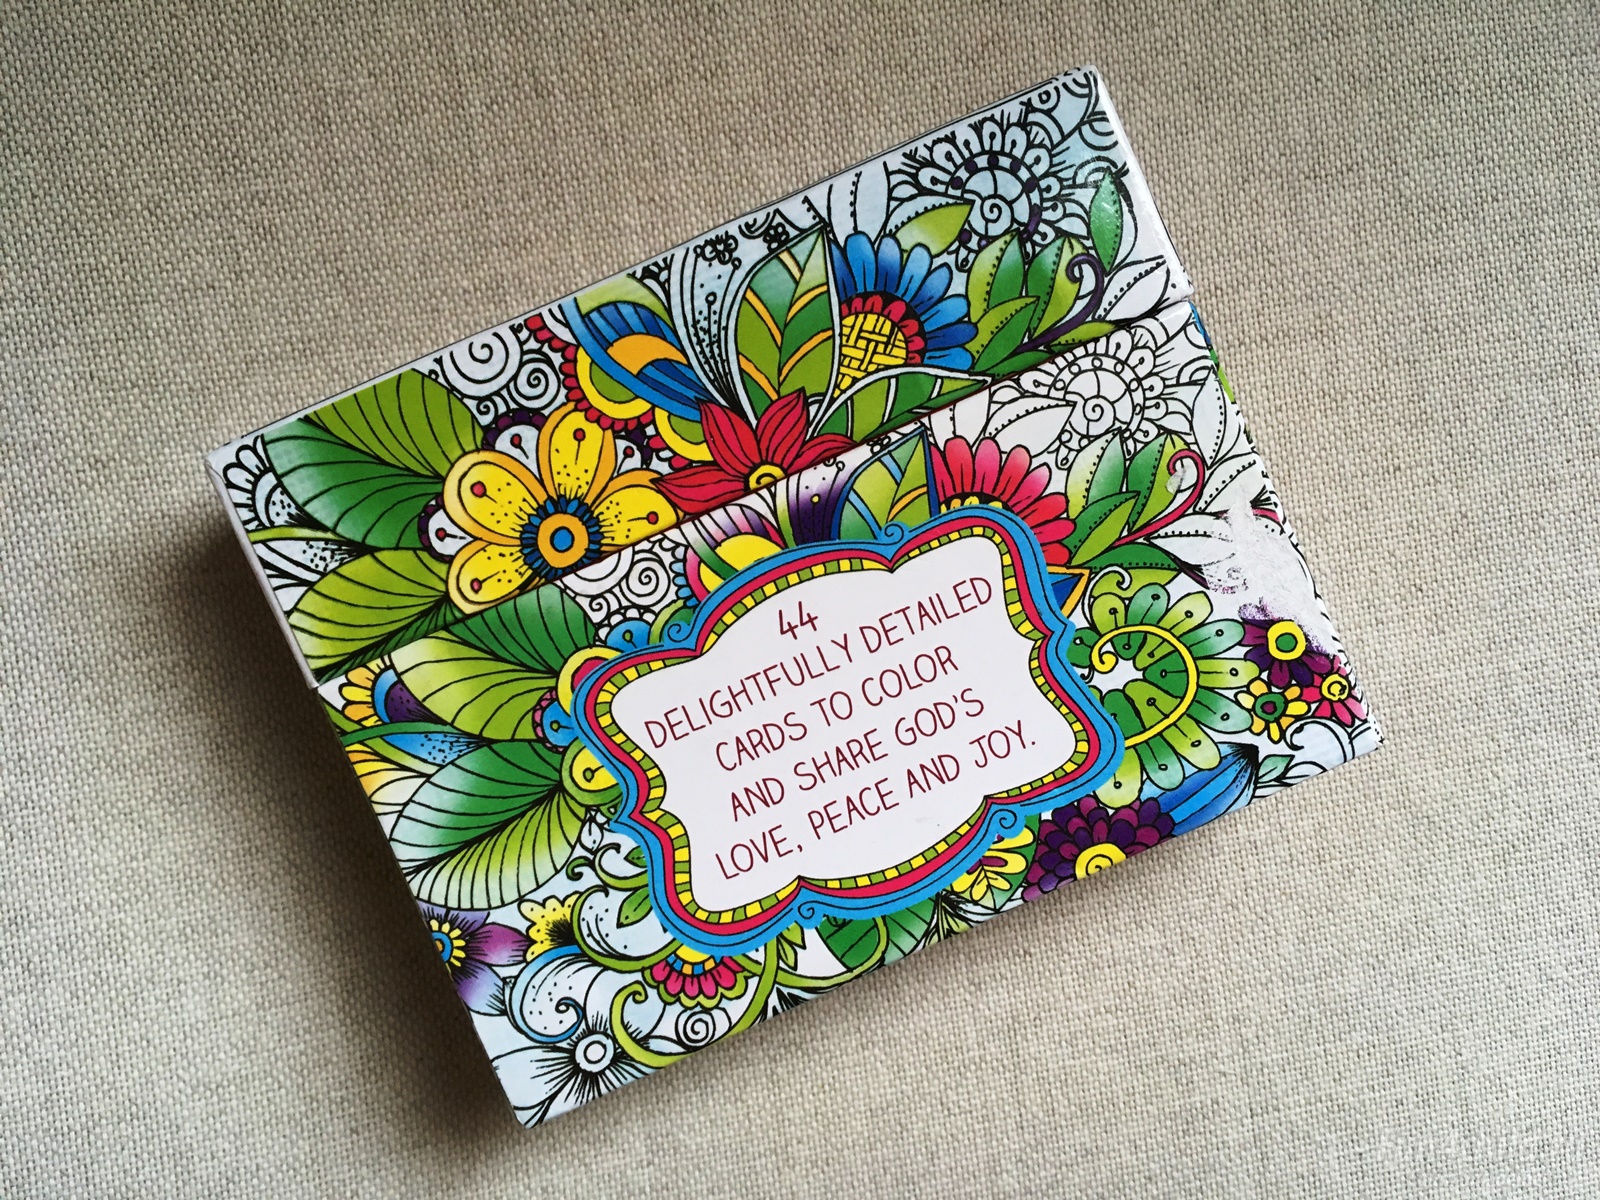 44
DELIGHTFULLY DETAILED
CARDS TO COLOR
AND SHARE GOD'S
LOVE, PEACE AND JOY.